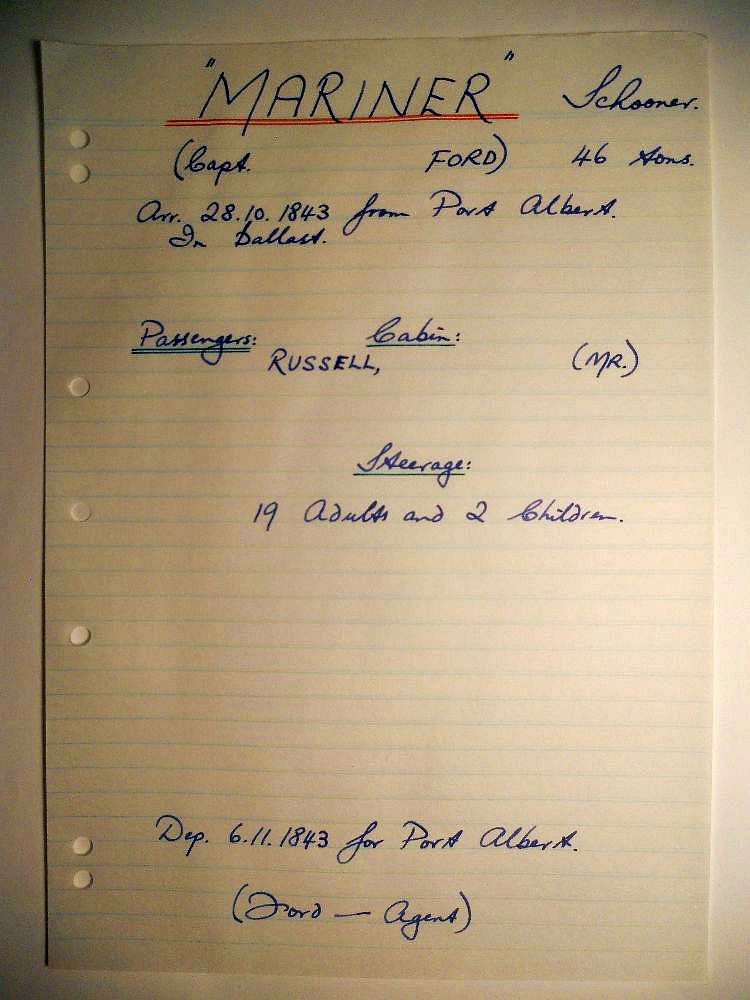 "MARINER" Schooner.
(Capt. FORD) 46 tons.
Arr. 28.10.1843 from Port Albert.
In ballast.
Passengers: Cabin:
RUSSELL, (MR.)
Steerage:
19 Adults and 2 Children.
Dep. 6.11.1843 for Port Albert.
(Ford — Agent)